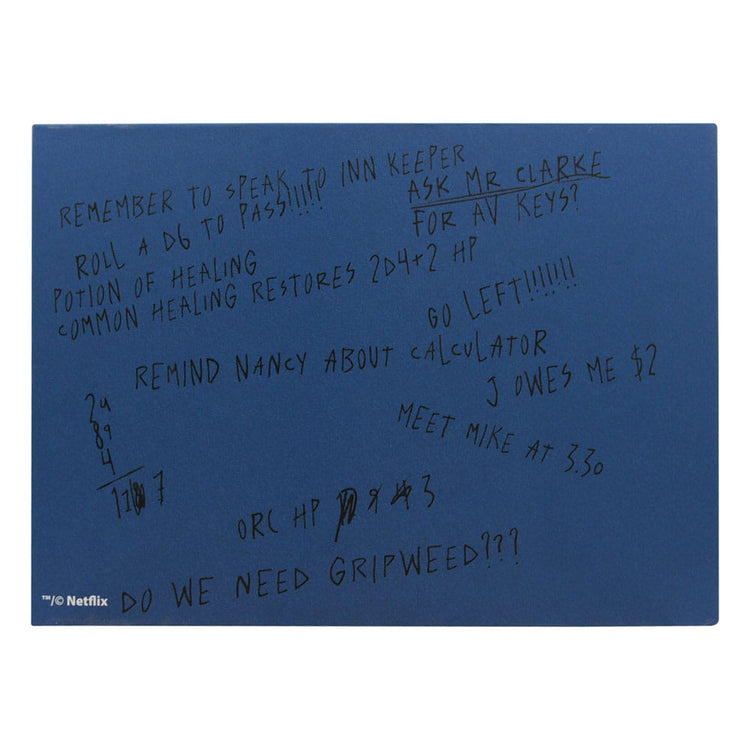 REMEMBER TO SPEAK TO INN KEEPER
ROLL A D6 TO PASS!!!!!
ASK MR CLARKE
FOR AV KEYS?
POTION OF HEALING
COMMON HEALING RESTORES 2D4+2 HP
GO LEFT!!!!!!!
REMIND NANCY ABOUT CALCULATOR
J OWES ME $2
MEET MIKE AT 3.30
24
89
4
11 7
ORC HP 9 4 3
DO WE NEED GRIPWEED???
™/© Netflix